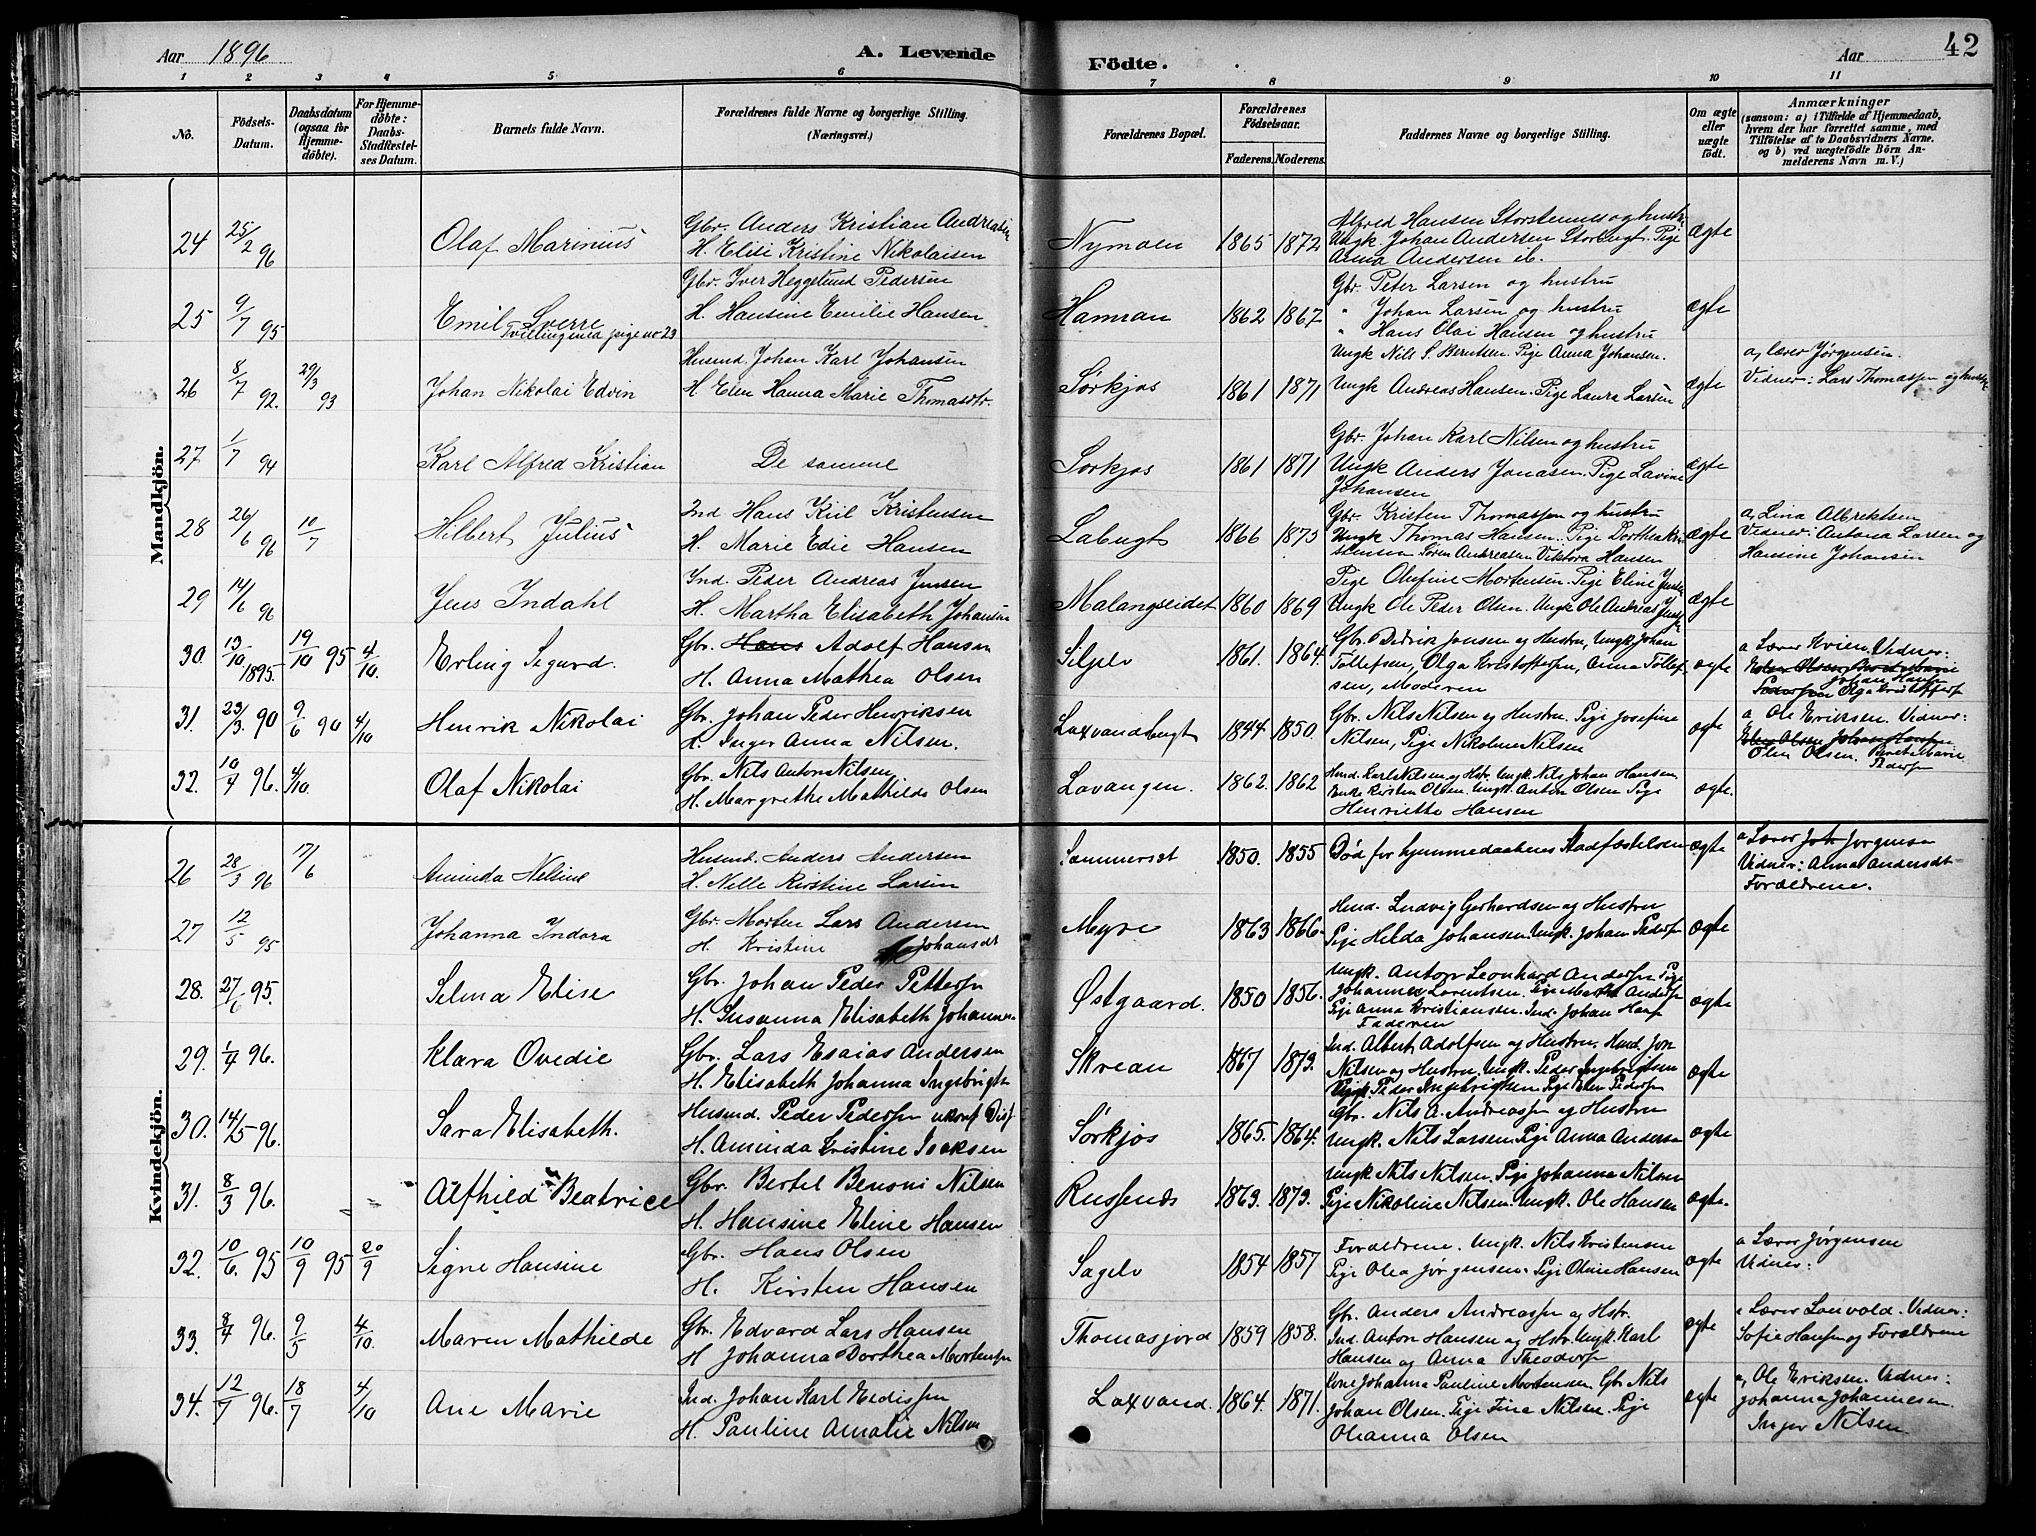 Aar 1896 A. Levende Födte. Aar 42
1 2 3 4 5 6 7 8 9 10 11
No.
Födsels-
Datum.
Daabsdatum
(ogsaa for
Hjemme-
döbte).
For Hjemme-
döbte:
Daabs-
Stadfæstel-
ses Datum.
Barnets fulde Navn.
Forældrenes fulde Navne og borgerlige Stilling.
(Næringsvei.)
Forældrenes Bopæl.
Forældrenes
Födselsaar.
Faderens. Moderens.
Faddernes Navne og borgerlige Stilling.
Om ægte
eller
uægte
födt.
Anmærkninger
(saasom: a) i Tilfælde af Hjemmedaab,
hvem der har forrettet samme, med
Tilföielse af to Daabsvidners Navne.
og b) ved uægtefödte Börn An-
melderens Navn m. V.)
Mandkjön.
24 25/2 96 Olaf Marinius
Gbr. Anders Kristian
H. Elise Kristine Nikolaisen
Nymoen 1865 1872
Alfred Hansen
Ungk Johan Andersen Storbugt. Pige
Anna Andersen ib.
ægte
25 9/7 95 Emil Sverre
Tvilling med pige no 23
Gbr. Iver Heggelund Pedersen
H. Hansine Emilie Hansen
1862 1867
Gbr. Peter Larsen og hustru
" Johan Larsen og hustru
" Hans Olai Hansen og hustru
ægte
26 8/7 92. 29/3 93 Johan Nikolai Edvin
Husmd. Johan Karl Johansen
H Elen Hanna Marie Thomasdtr.
Sørkjos 1861 1871
Ungk Nils S. Berntsen. Pige Anna Johansen.
Ungk Andreas Hansen. Pige Laura Larsen
ægte
a, lærer Jørgensen.
Vidner: Lars Thomassen og hustru
27 1/7 94 Karl Alfred Kristian
De samme
Sørkjos 1861 1871
Gbr. Johan Karl Nilsen og hustru
Ungk Anders Jonasen. Pige Lavine
Johansen
ægte
28 26/6 96 10/7 Hilbert Julius
Ind Hans Kiil Kristensen
H. Marie Edie Hansen
Labugt 1866 1873
Gbr. Kristen Thomassen og hustru
Ungk Thomas Hansen. Pige Dorthea Kri-
stensen Søren Andreasen Viktora Hansen
ægte
a, Lina Albrektsen
Vidner: Antona Larsen og
Hansine Johansen
29 14/6 96 Jens Indahl
Ind. Peder Andreas Jensen
H. Martha Elisabeth Johansen
Malangseidet 1860 1869
Pige Olufine Mortensen. Pige Eline
Ungk Ole Peder Olsen. Ungk Ole Andreas
ægte
30. 13/10 1895. 19/10 95 4/10. Erling Sigurd.
Gbr. Hans Adolf Hansen
H. Anna Mathea Olsen
1861. 1864.
Gbr. Didrik Jonsen og Hustru, Ungk Johan
Tollefsen, Olga Kristoffersen, Anna Tollef-
sen, Moderen
ægte
a Lærer Kvien. Vidner:
Johan Hansen
Olga Kristoffersen
31. 23/3. 90 9/6 90 4/10 Henrik Nikolai
Gbr. Johan Peder Henriksen
H. Inger Anna Nilsen.
Laxvandsbugt 1844 1850.
Gbr. Nils Nilsen og Hustru. Pige Josefine
Nilsen, Pige Nikoline Nilsen
ægte
a Ole Eriksen. Vidner:
Elen Olsen Johan Hansen
Olen Olsen. Berit Marie
Pedersen
32. 10/4 96. 4/10. Olaf Nikolai
Gbr. Nils Anton Nilsen
H. Margrethe Mathilde Olsen
Lavangen. 1862. 1862
Husmd. Karl Nilsen og Hstr. Ungk. Nils Johan Hansen
Enke Kirsten Olsen. Ungk. Anton Olsen Pige
Henriette Hansen
ægte.
Kvindekjön.
26 28/3 96 17/6 Aminda Nelsine
Husmd. Anders Andersen
H. Nelle Kirstine Larsen
Sommerset 1850. 1855
Død før hjemmedaabens Stadfæstelsen
ægte
a Lærer Joh Jørgensen
Vidner: Anna Andersdt
Forældrene.
27 12/5 95 Johanna Indora
Gbr. Morten Lars Andersen
H. Kristine Johansdt
Myre 1863 1866
Husmd. Ludvig Gerhardsen og Hustru
Pige Hilda Johansen. Ungk. Johan Pedersen
ægte
28. 27/6 95. Selma Elise
Gbr. Johan Peder Pettersen
H. Susanna Elisabeth
Østgaard. 1850 1856.
Ungk. Anton Leonhard Andersen Pige
Johanne Lorentsen. Pige Martha Andersen
Pige Anna Kristiansen. Ind. Johan Hansen
Faderen
ægte
29. 1/4 96. Klara Ovedie
Gbr. Lars Esaias Andersen
H. Elisabeth Johanna Ingebrigtsen
Skrean 1867 1873.
Ind. Albert Adolfsen og Hustru. Husmd. Jon
Nilsen og Hustru. Ungk. Peder Ingebrigtsen
Ungk. Peder Ingebrigtsen Pige Elen Pedersen
ægte
30. 14/5 96. Sara Elisabeth.
Husmd. Peder Pedersen
H. Aminda Kristine Isaksen
Sørkjos 1865. 1864.
Gbr. Nils A. Andreassen og Hustru
Ungk. Nils Larsen. Pige Anna Andersen
ægte
31. 8/3 96. Alfhild Beatrice
Gbr. Bertel Benoni Nilsen
H. Hansine Eline Hansen
Russenæs 1863. 1873.
Ungk Nils Nilsen. Pige Johanna Nilsen
Pige Nikoline Nilsen. Ungk. Ole Hansen
ægte.
32. 10/6. 95 10/9 95 20/9 Signe Hansine
Gbr. Hans Olsen
H. Kirsten Hansen
Sagelv 1854 1857
Forældrene. Ungk. Nils Kristensen
Pige Olea Jørgensen. Pige Oline Hansen
ægte
a Lærer Jørgensen
Vidnes:
33. 8/4 96. 9/5 4/10. Maren Mathilde
Gbr. Edvard Lars Hansen
H Johanna Dorthea Mortensen
Thomasjord 1859 1858.
Gbr. Anders Andreassen og Hstr.
Ind. Anton Hansen og Hstr. Ungk. Karl
Hansen og Anna Theodorsen
ægte
a Lærer Vidner:
Sofie Hansen og Forældrene
34. 12/7 96. 18/7 4/10 Ane Marie
Ind. Johan Karl
H. Pauline Amalie Nilsen
Laxvand. 1864. 1871.
Johanna Pauline Mortensen Gbr Nils
Johan Olsen. Pige Fina Nilsen. Pige
Olianna Olsen
ægte
a, Ole Eriksen. Vidnes:
Johanna Johannesen
Inger Nilsen